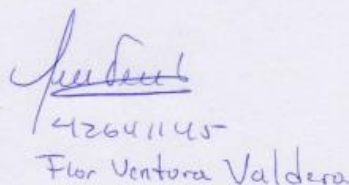 42641145
Flor Ventura Valdera